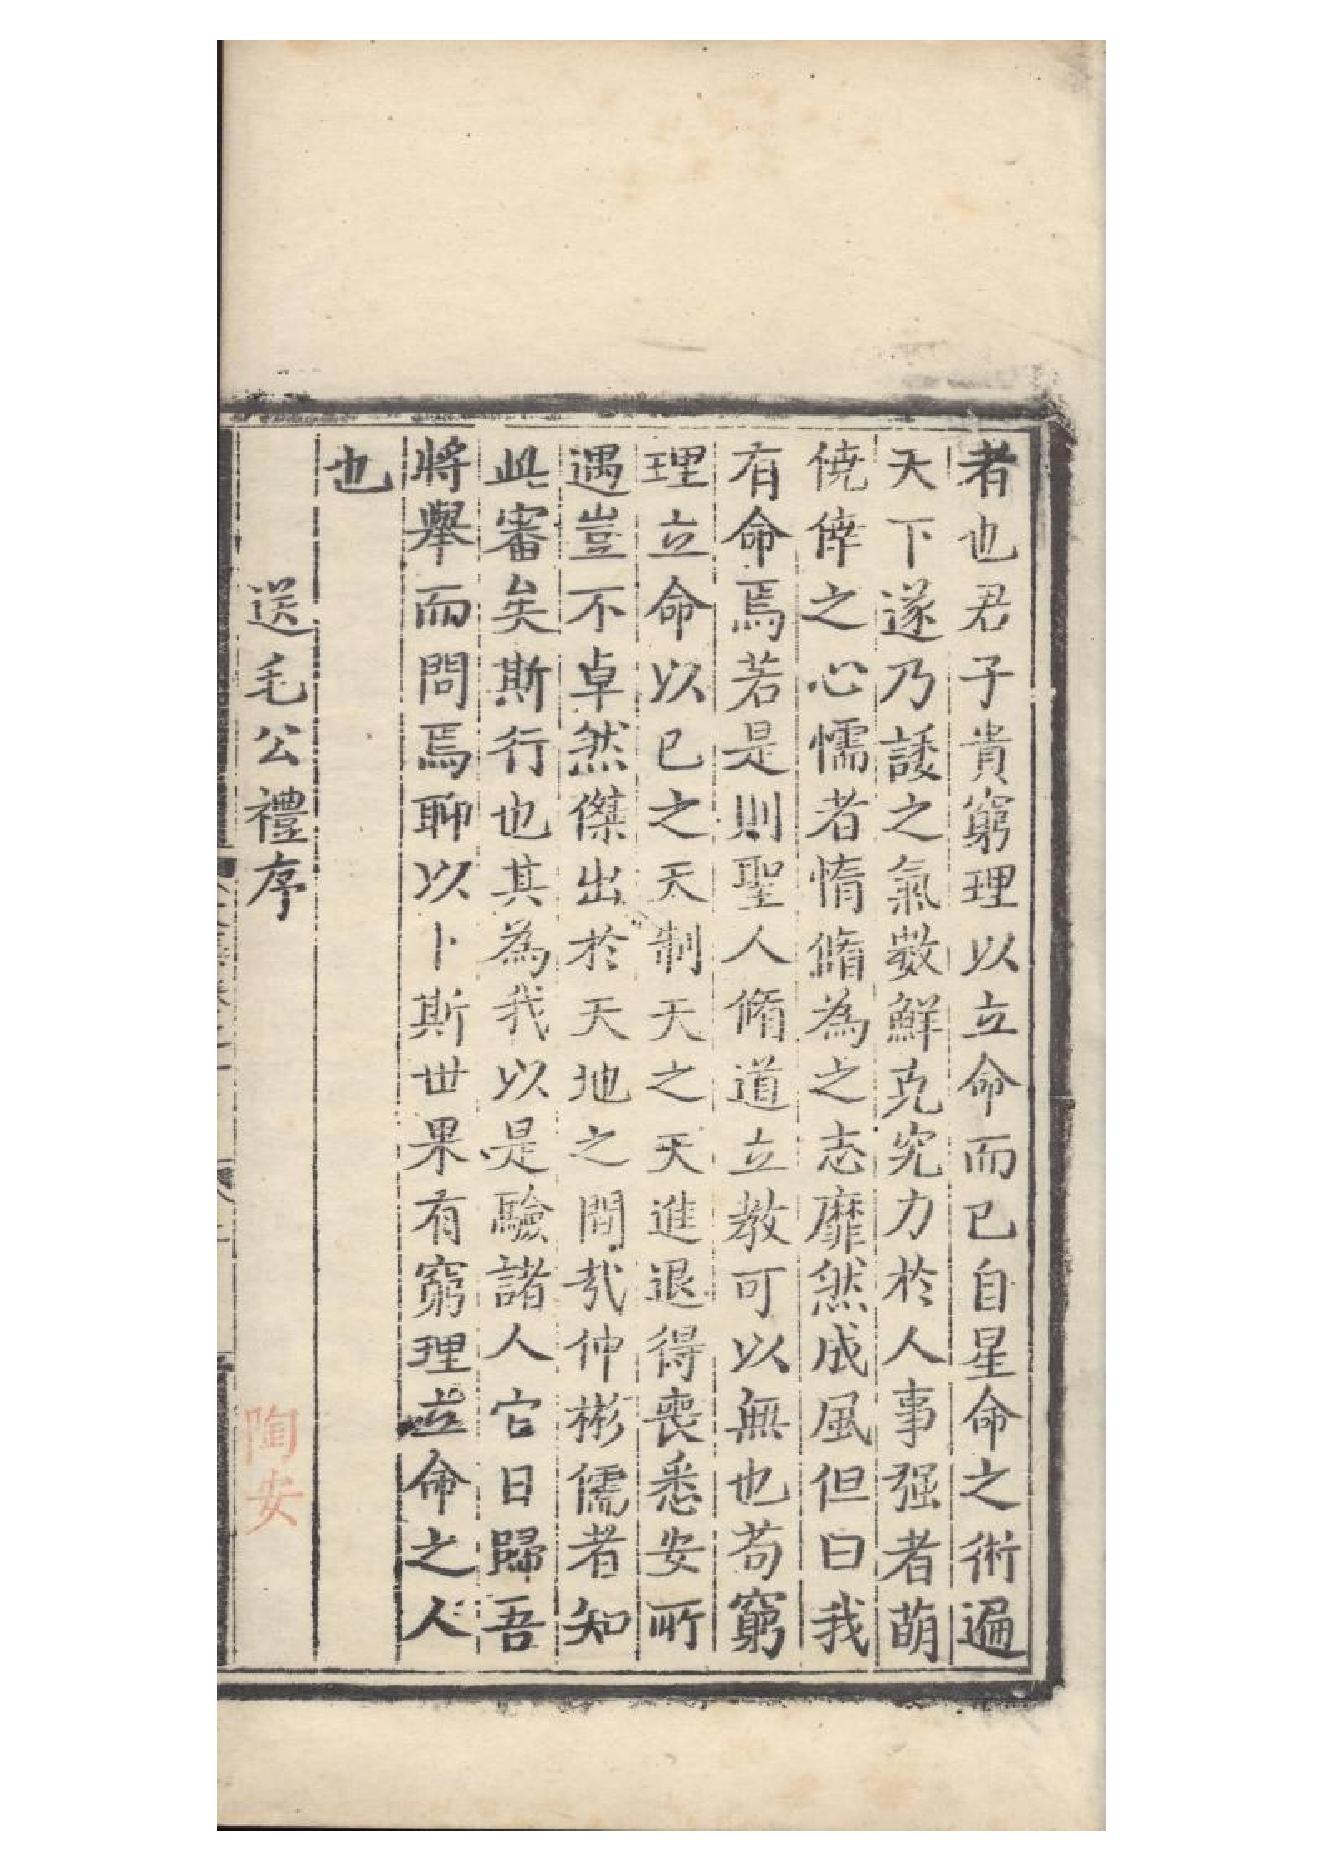 者也君子貴窮理以立命而已自星命之術遍
天下遂乃諉之氣數鮮克究力於人事强者萌
僥倖之心懦者惰脩為之志靡然成風但曰我
有命焉若是則聖人脩道立教可以無也苟窮
理立命以已之天制天之天進退得喪悉安所
遇豈不卓然傑出於天地之間哉仲彬儒者知
此審矣斯行也其為我以是驗諸人它日歸吾
將舉而問焉聊以卜斯世果有窮理立命之人
也
送毛公禮序
陶安